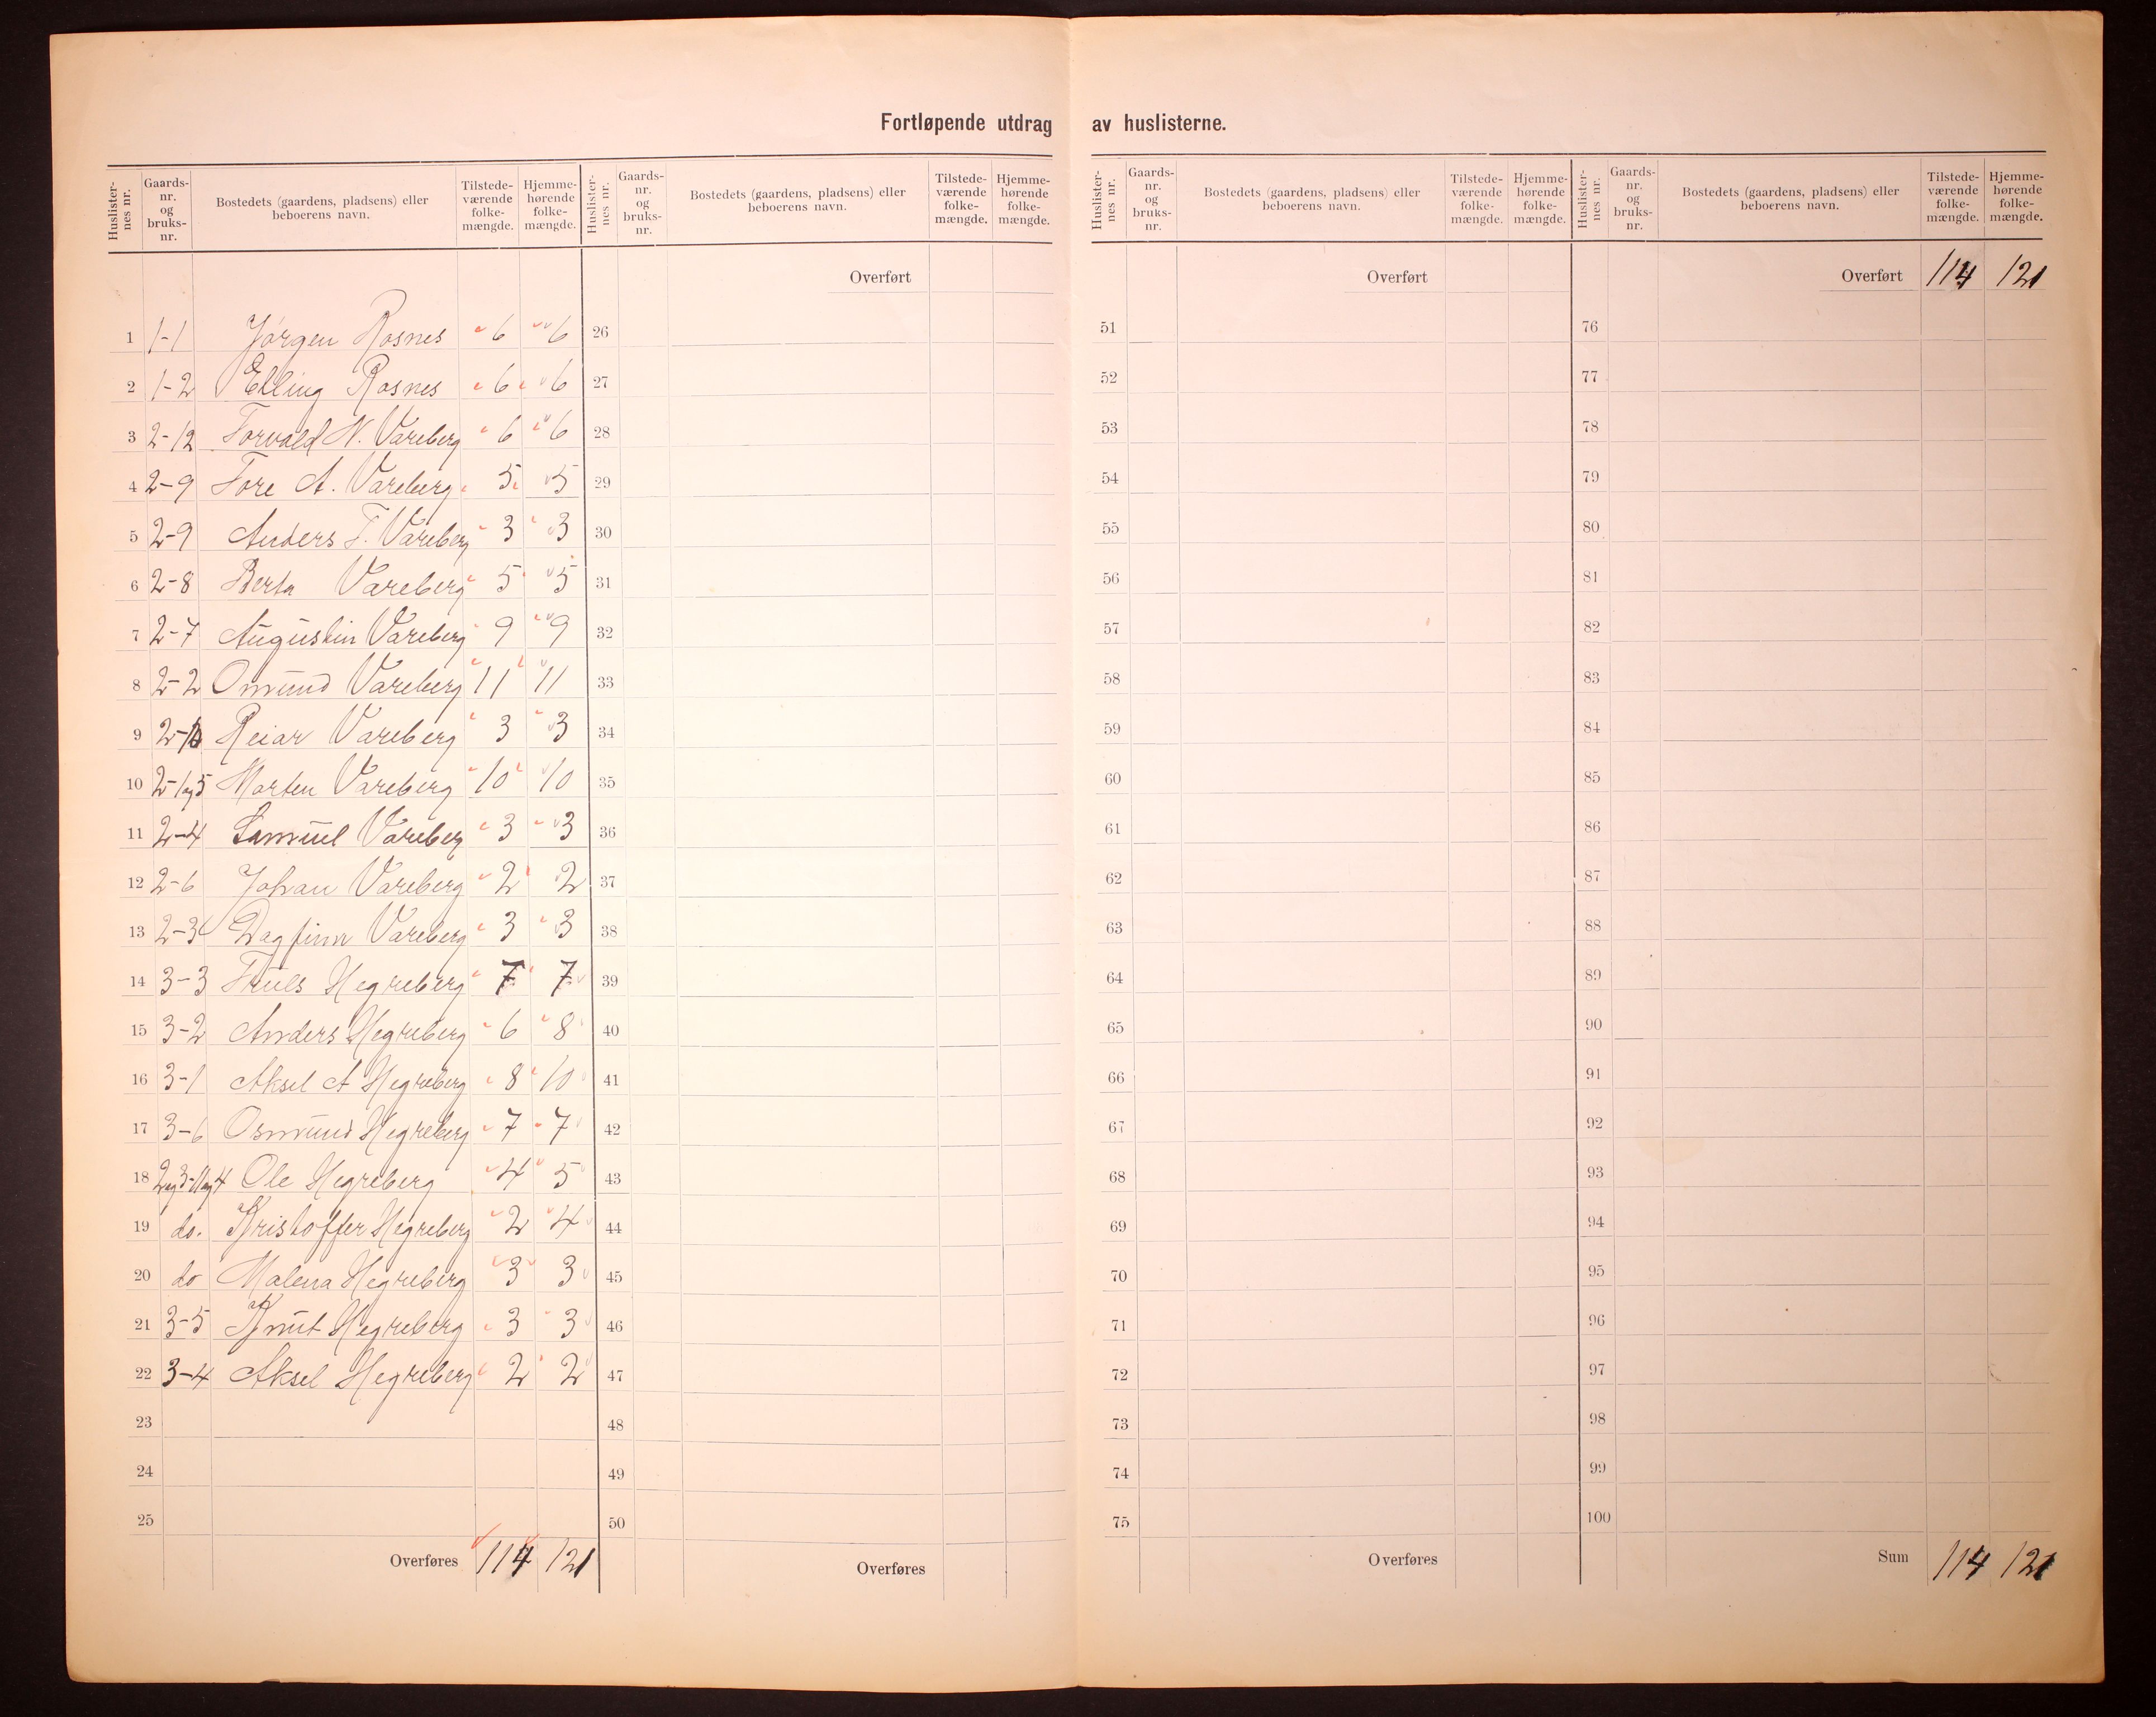 Fortløpende utdrag av huslisterne.
Huslister-nes nr. Gaards-nr. og bruks-nr. Bostedets (gaardens, pladsens) eller beboerens navn. Tilstede-værende folke-mængde. Hjemme-hørende folke-mængde.
Huslister-nes nr. Gaards-nr. og bruks-nr. Bostedets (gaardens, pladsens) eller beboerens navn. Tilstede-værende folke-mængde. Hjemme-hørende folke-mængde.
Huslister-nes nr. Gaards-nr. og bruks-nr. Bostedets (gaardens, pladsens) eller beboerens navn. Tilstede-værende folke-mængde. Hjemme-hørende folke-mængde.
Huslister-nes nr. Gaards-nr. og bruks-nr. Bostedets (gaardens, pladsens) eller beboerens navn. Tilstede-værende folke-mængde. Hjemme-hørende folke-mængde.
1 1-1 Jørgen Rosnes 6 6
2 1-2 Elling Rosnes 6 6
3 2-12 Torvald N. Vareberg 6 6
4 2-9 Tore A. Vareberg 5 5
5 2-9 Anders T. Vareberg 3 3
6 2-8 Berta Vareberg 5 5
7 2-7 Augustin Vareberg 9 9
8 2-2 Omund Vareberg 11 11
9 2-10 Reiar Vareberg 3 3
10 2-1og5 Morten Vareberg 10 10
11 2-4 Samuel Vareberg 3 3
12 2-6 Johan Vareberg 2 2
13 2-3 Dagfinn Vareberg 3 3
14 3-3 Truls Hegreberg 7 7
15 3-2 Anders Hegreberg 6 8
16 3-1 Aksel A Hegreberg 8 10
17 3-6 Osmund Hegreberg 7 7
18 2og3-11og4 Ole Hegreberg 4 5
19 do. Kristoffer Hegreberg 2 4
20 do Malena Hegreberg 3 3
21 3-5 Knut Hegreberg 3 3
22 3-4 Aksel Hegreberg 2 2
23
24
25
Overføres 114 121
Overført
26
27
28
29
30
31
32
33
34
35
36
37
38
39
40
41
42
43
44
45
46
47
48
49
50
Overføres
Overført
51
52
53
54
55
56
57
58
59
60
61
62
63
64
65
66
67
68
69
70
71
72
73
74
75
Overføres
Overført 114 121
76
77
78
79
80
81
82
83
84
85
86
87
88
89
90
91
92
93
94
95
96
97
98
99
100
Sum 114 121